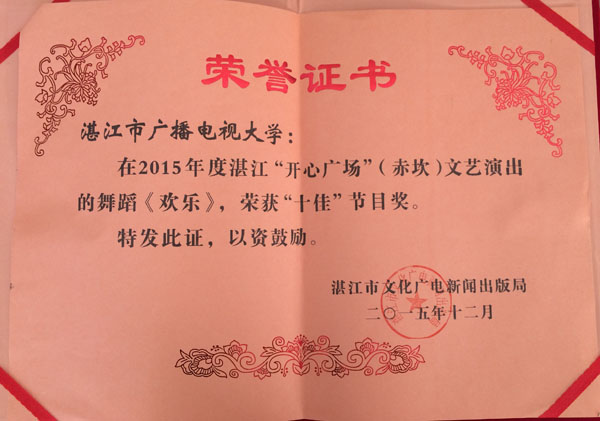 荣誉证书
湛江市广播电视大学：
在2015年度湛江“开心广场”（赤坎）文艺演出
的舞蹈《欢乐》，荣获“十佳”节目奖。
特发此证，以资鼓励。
湛江市文化广电新闻出版局
二〇一五年十二月